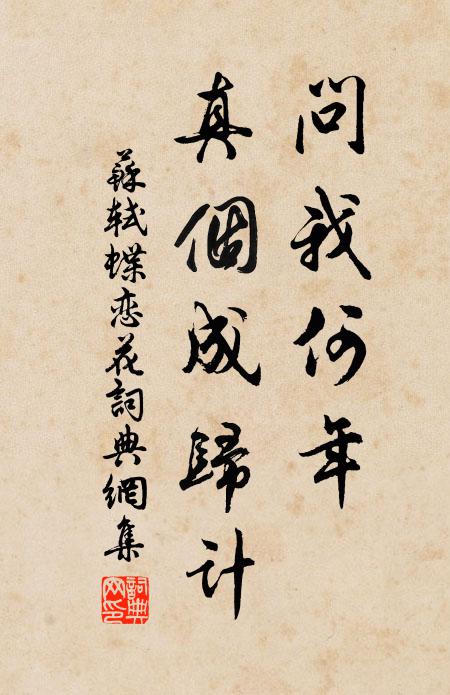 問我何年
真個成歸计
蘇軾蝶恋花詞典網集
詞典网印